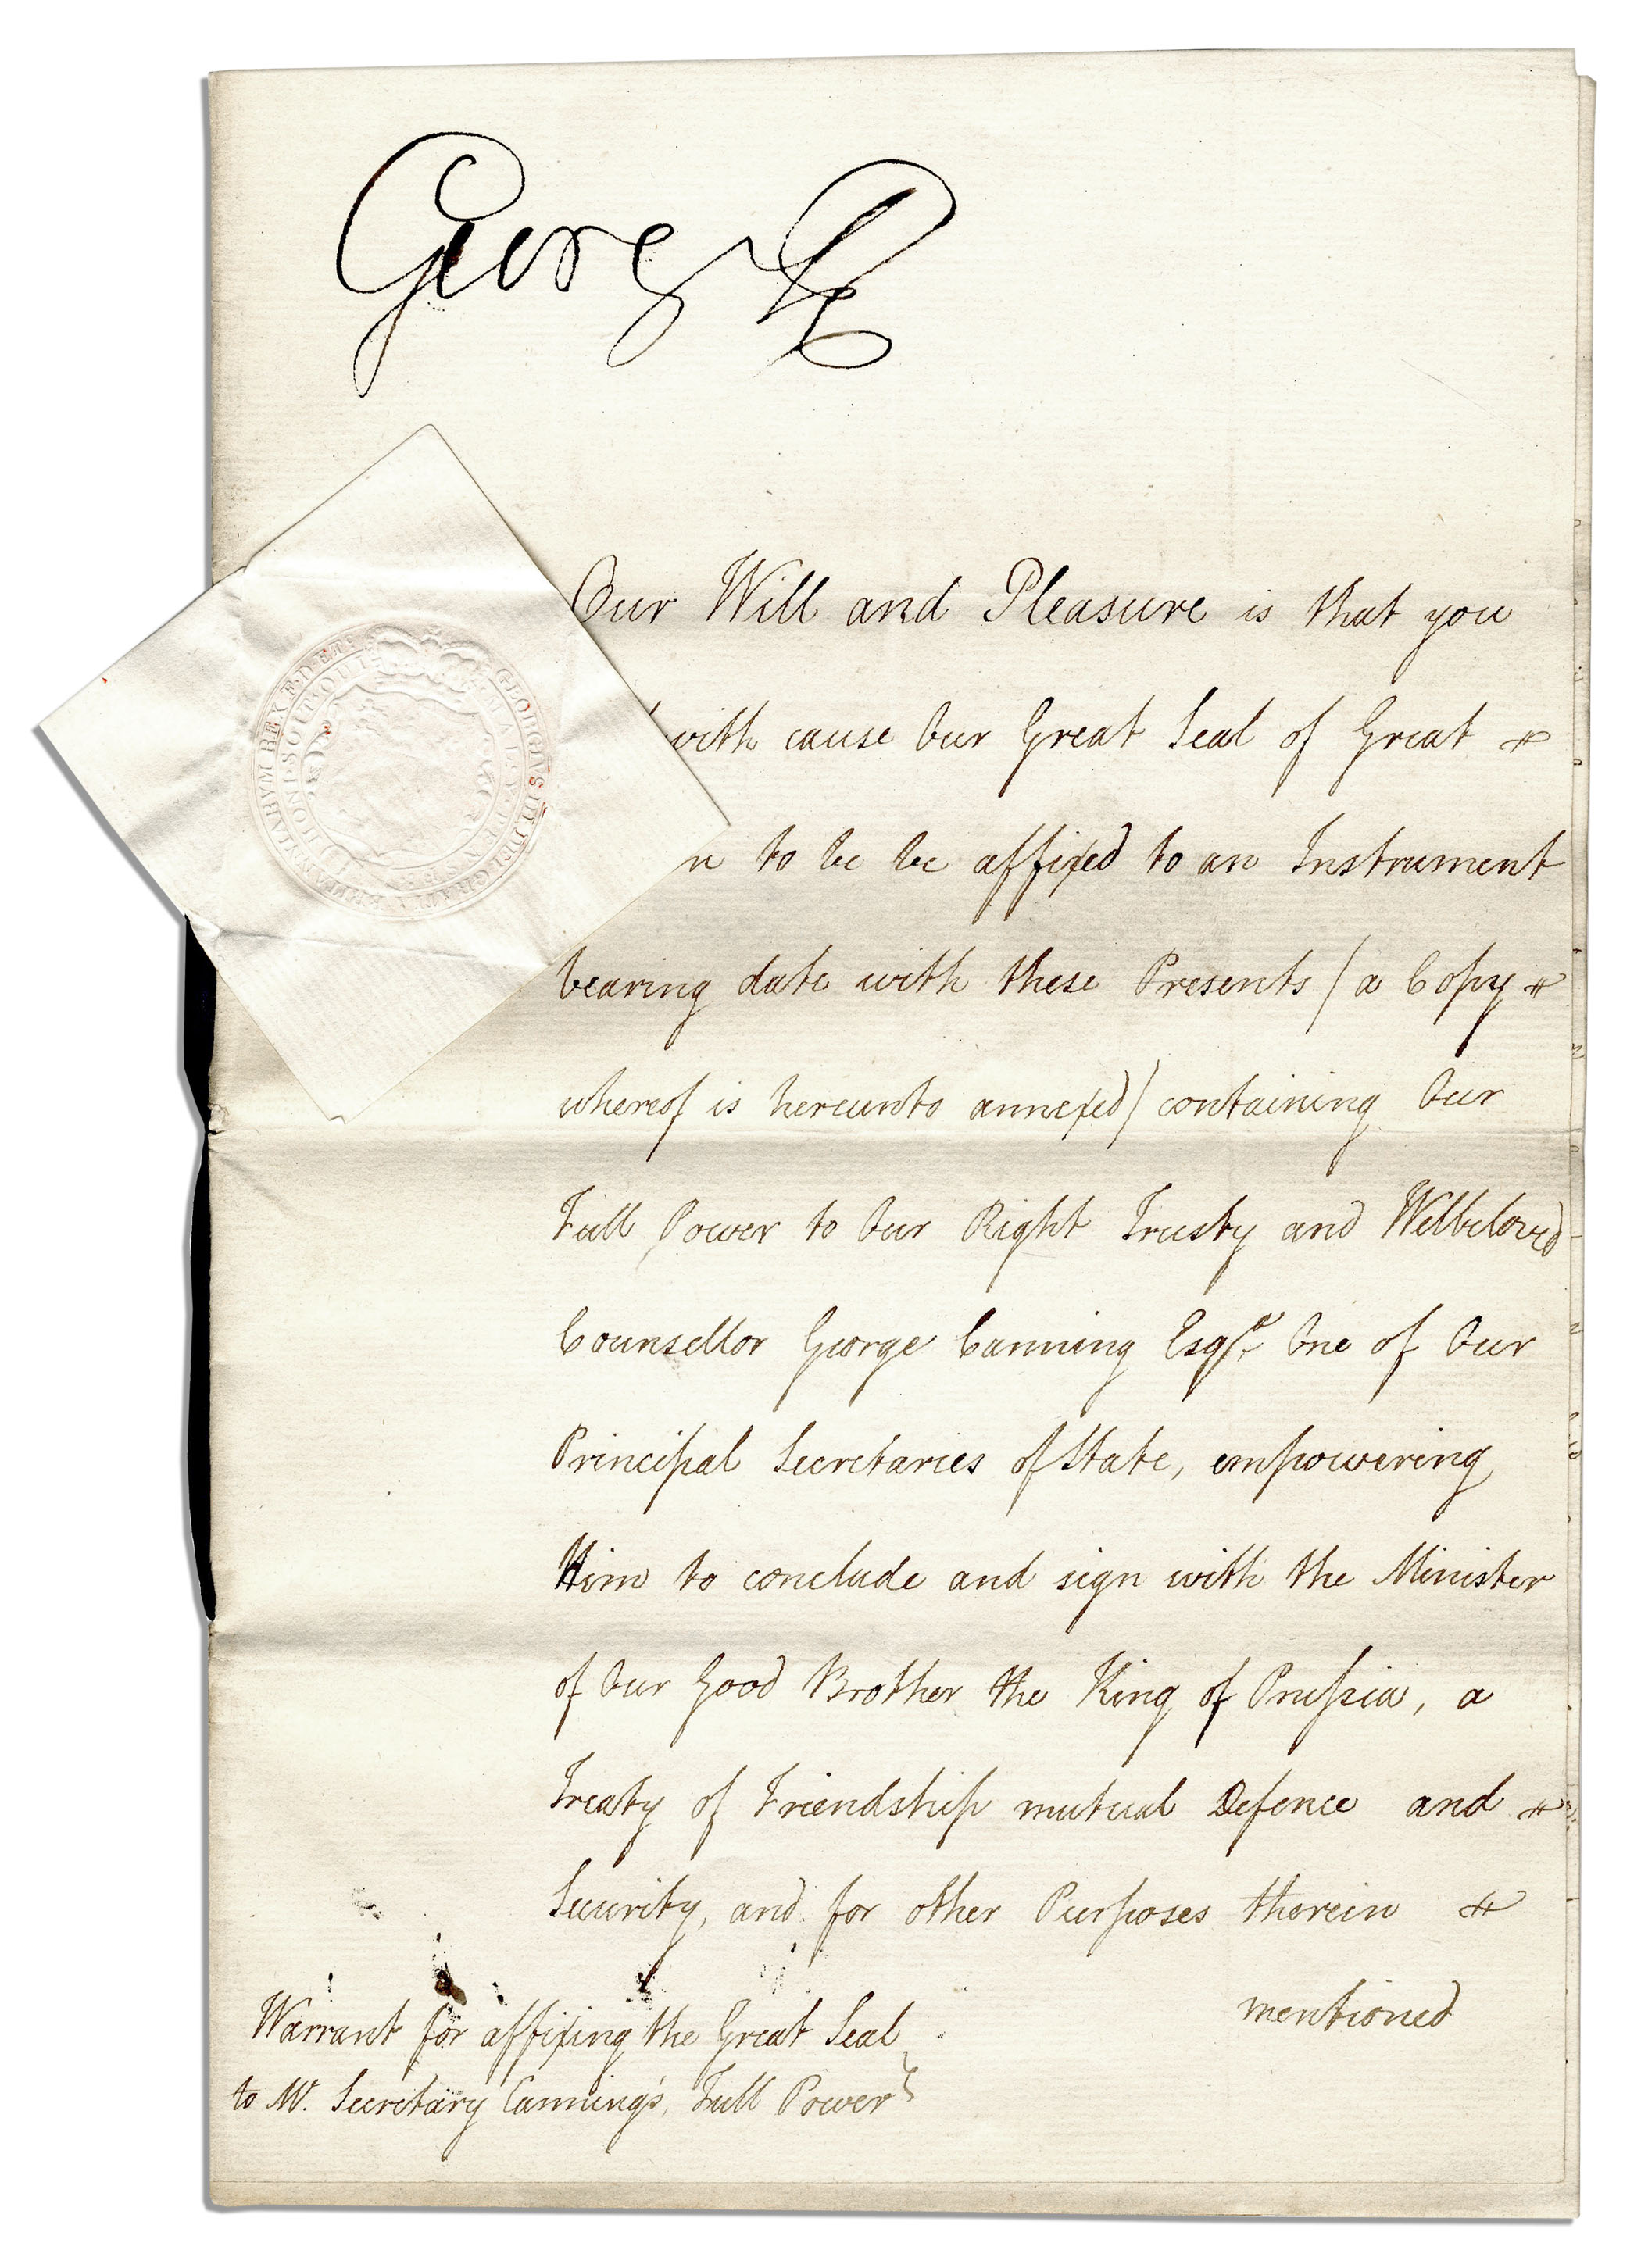 George R
Our Will and Pleasure is that you
with cause Our Great Seal of Great
n to be be affixed to an Instrument
bearing date with these Presents / a Copy
whereof is hereunto annexed / containing Our
Full Power to Our Right Trusty and Wellbeloved
Counsellor George Canning Esqr. One of Our
Principal Secretaries of State, empowering
Him to conclude and sign with the Minister
of Our Good Brother the King of Prussia, a
Treaty of Friendship mutual Defence and
Security, and for other Purposes therein
mentioned
Warrant for affixing the Great Seal
to Mr. Secretary Canning's, Full Power
GEORGIVS III DEI GRATIA BRITANNIARVM REX F.D. ET.
HONI SOIT QUI MAL Y PENSE